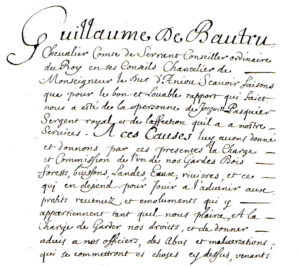 Guillaume De Bautru
Chevalier Comte de Serrant Conseiller ordinaire
du Roy en ses Conseils Chancelier de
Monseigneur le Duc d'Aniou Scavoir faisons
que pour le bon et Louable rapport qui faict
nous a esté de la personne de Pasquier
Sergent royal, et de l'affection quil a a nostre
Services. A ces Causes luy avons donné
et donnons par ces presentes la Charge
et Commission de l'un de nos Gardes Bois
Forests, buissons, Landes Eaux, rivieres, et ce
qui en depend pour Jouir a l'advenir aux
profits revenuz et emoluments qui y
appartiennent tant quil nous plaira, A la
Charge de Garder nos droits, et de donner
advis a nos officiers, des Abus et malversations
qui se commettront es choses cy dessus, venants